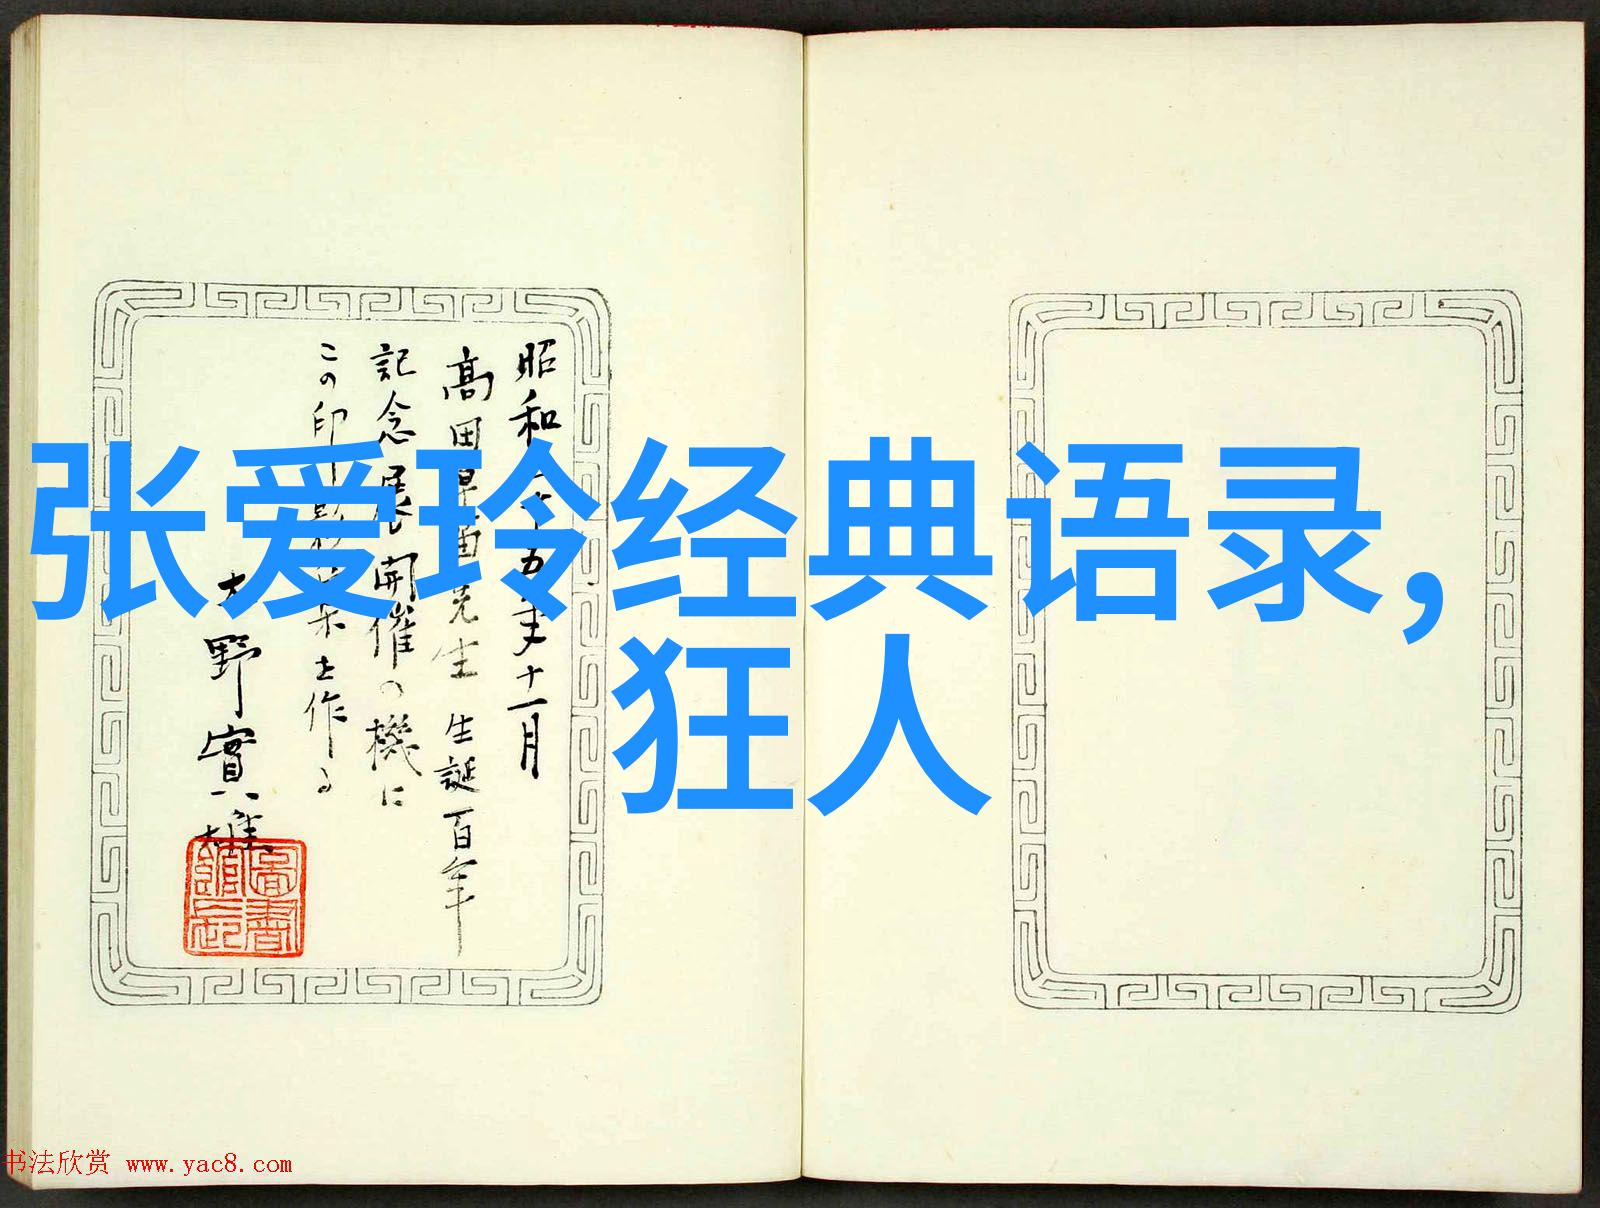 张爱玲经典语录,
狂人
昭和十五年十一月
高田早苗先生 生誕百年
記念展開催の機に
この印
作る
大野實雄
圖書
館長
书法欣赏 www.yac8.com